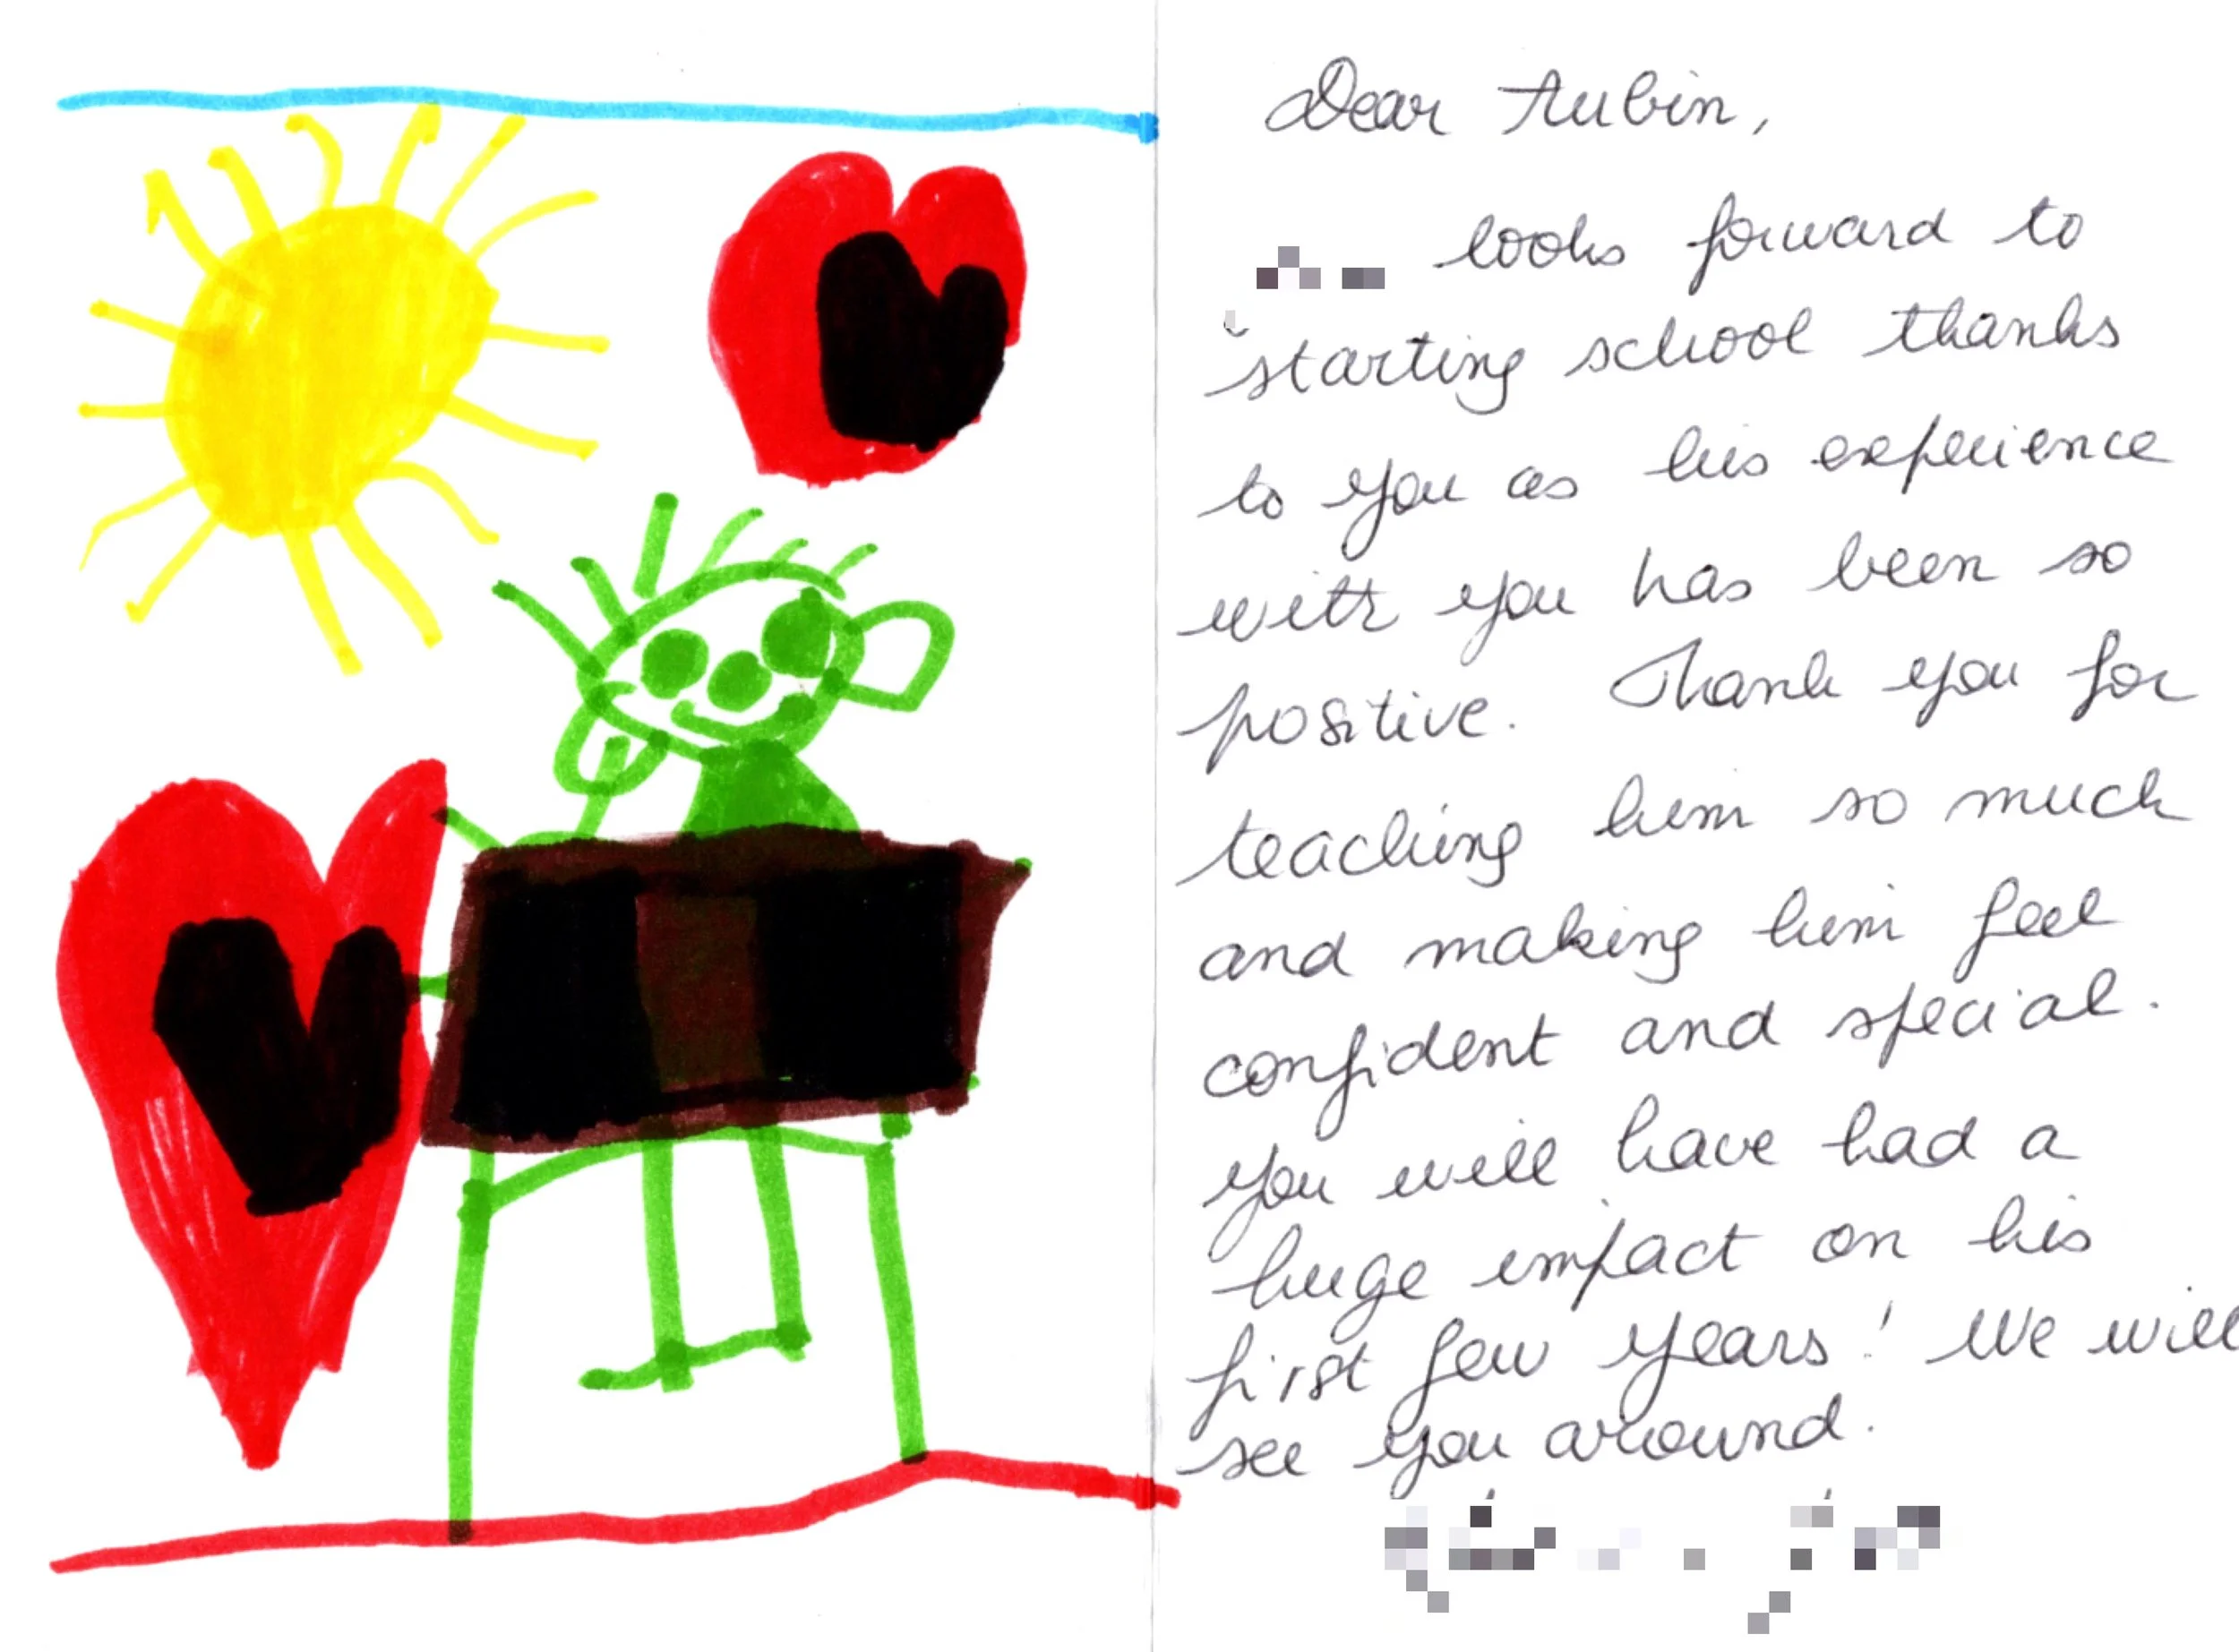 Dear Aubin,
looks forward to
starting school thanks
to you as his experience
with you has been so
positive. Thank you for
teaching him so much
and making him feel
confident and special.
You will have had a
huge impact on his
first few years! We will
see you around.